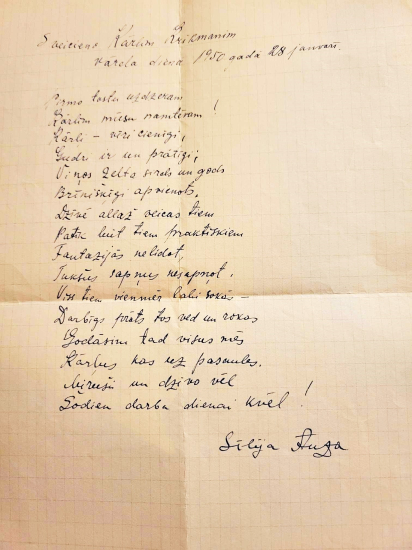 Sveiciens Kārlim Krikmanim
vārda dienā 1950. gadā 28 janvārī.
Pirmo tostu uzdzeram
Kārlim mūsu namtēvam!
Kārļi – vīri cienīgi,
Gudri ir un prātīgi;
Viņos zelta sirds un gods
Brīnišķīgi apvienots.
Dzīvē allaž veicas tiem
Patīk būt tiem praktiskiem
Fantāzijās nelidot,
Tukšus sapņus nesapņot.
Viss tiem vienmēr labi sokās –
Darbīgs prāts tos ved un rokas
Godāsim tad visus mēs
Kārļus kas uz pasaules.
Miruši un dzīvo vēl
Šodien darba dienai kvēl!
Silija Auza